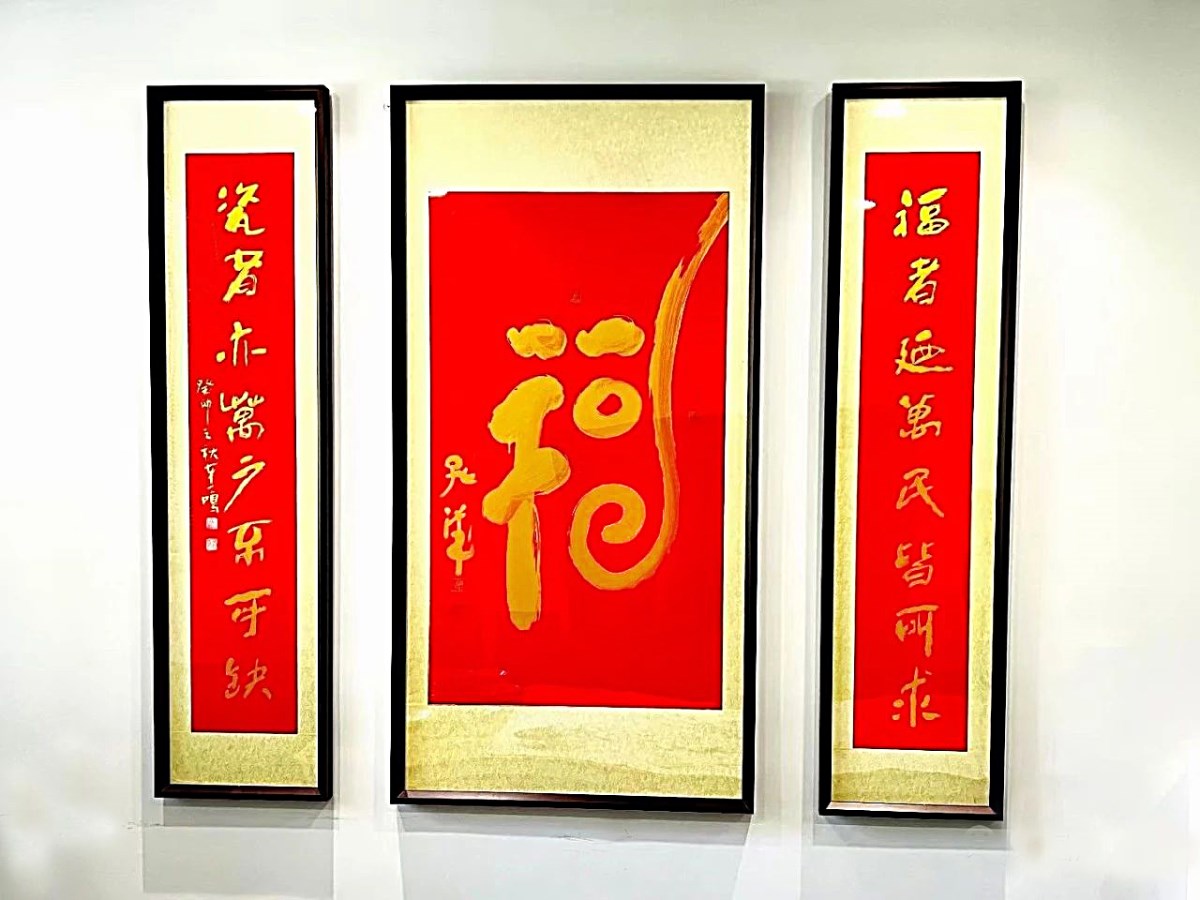 福者廼萬民皆所求
福
瓷者亦萬户不可缺
癸卯之秋